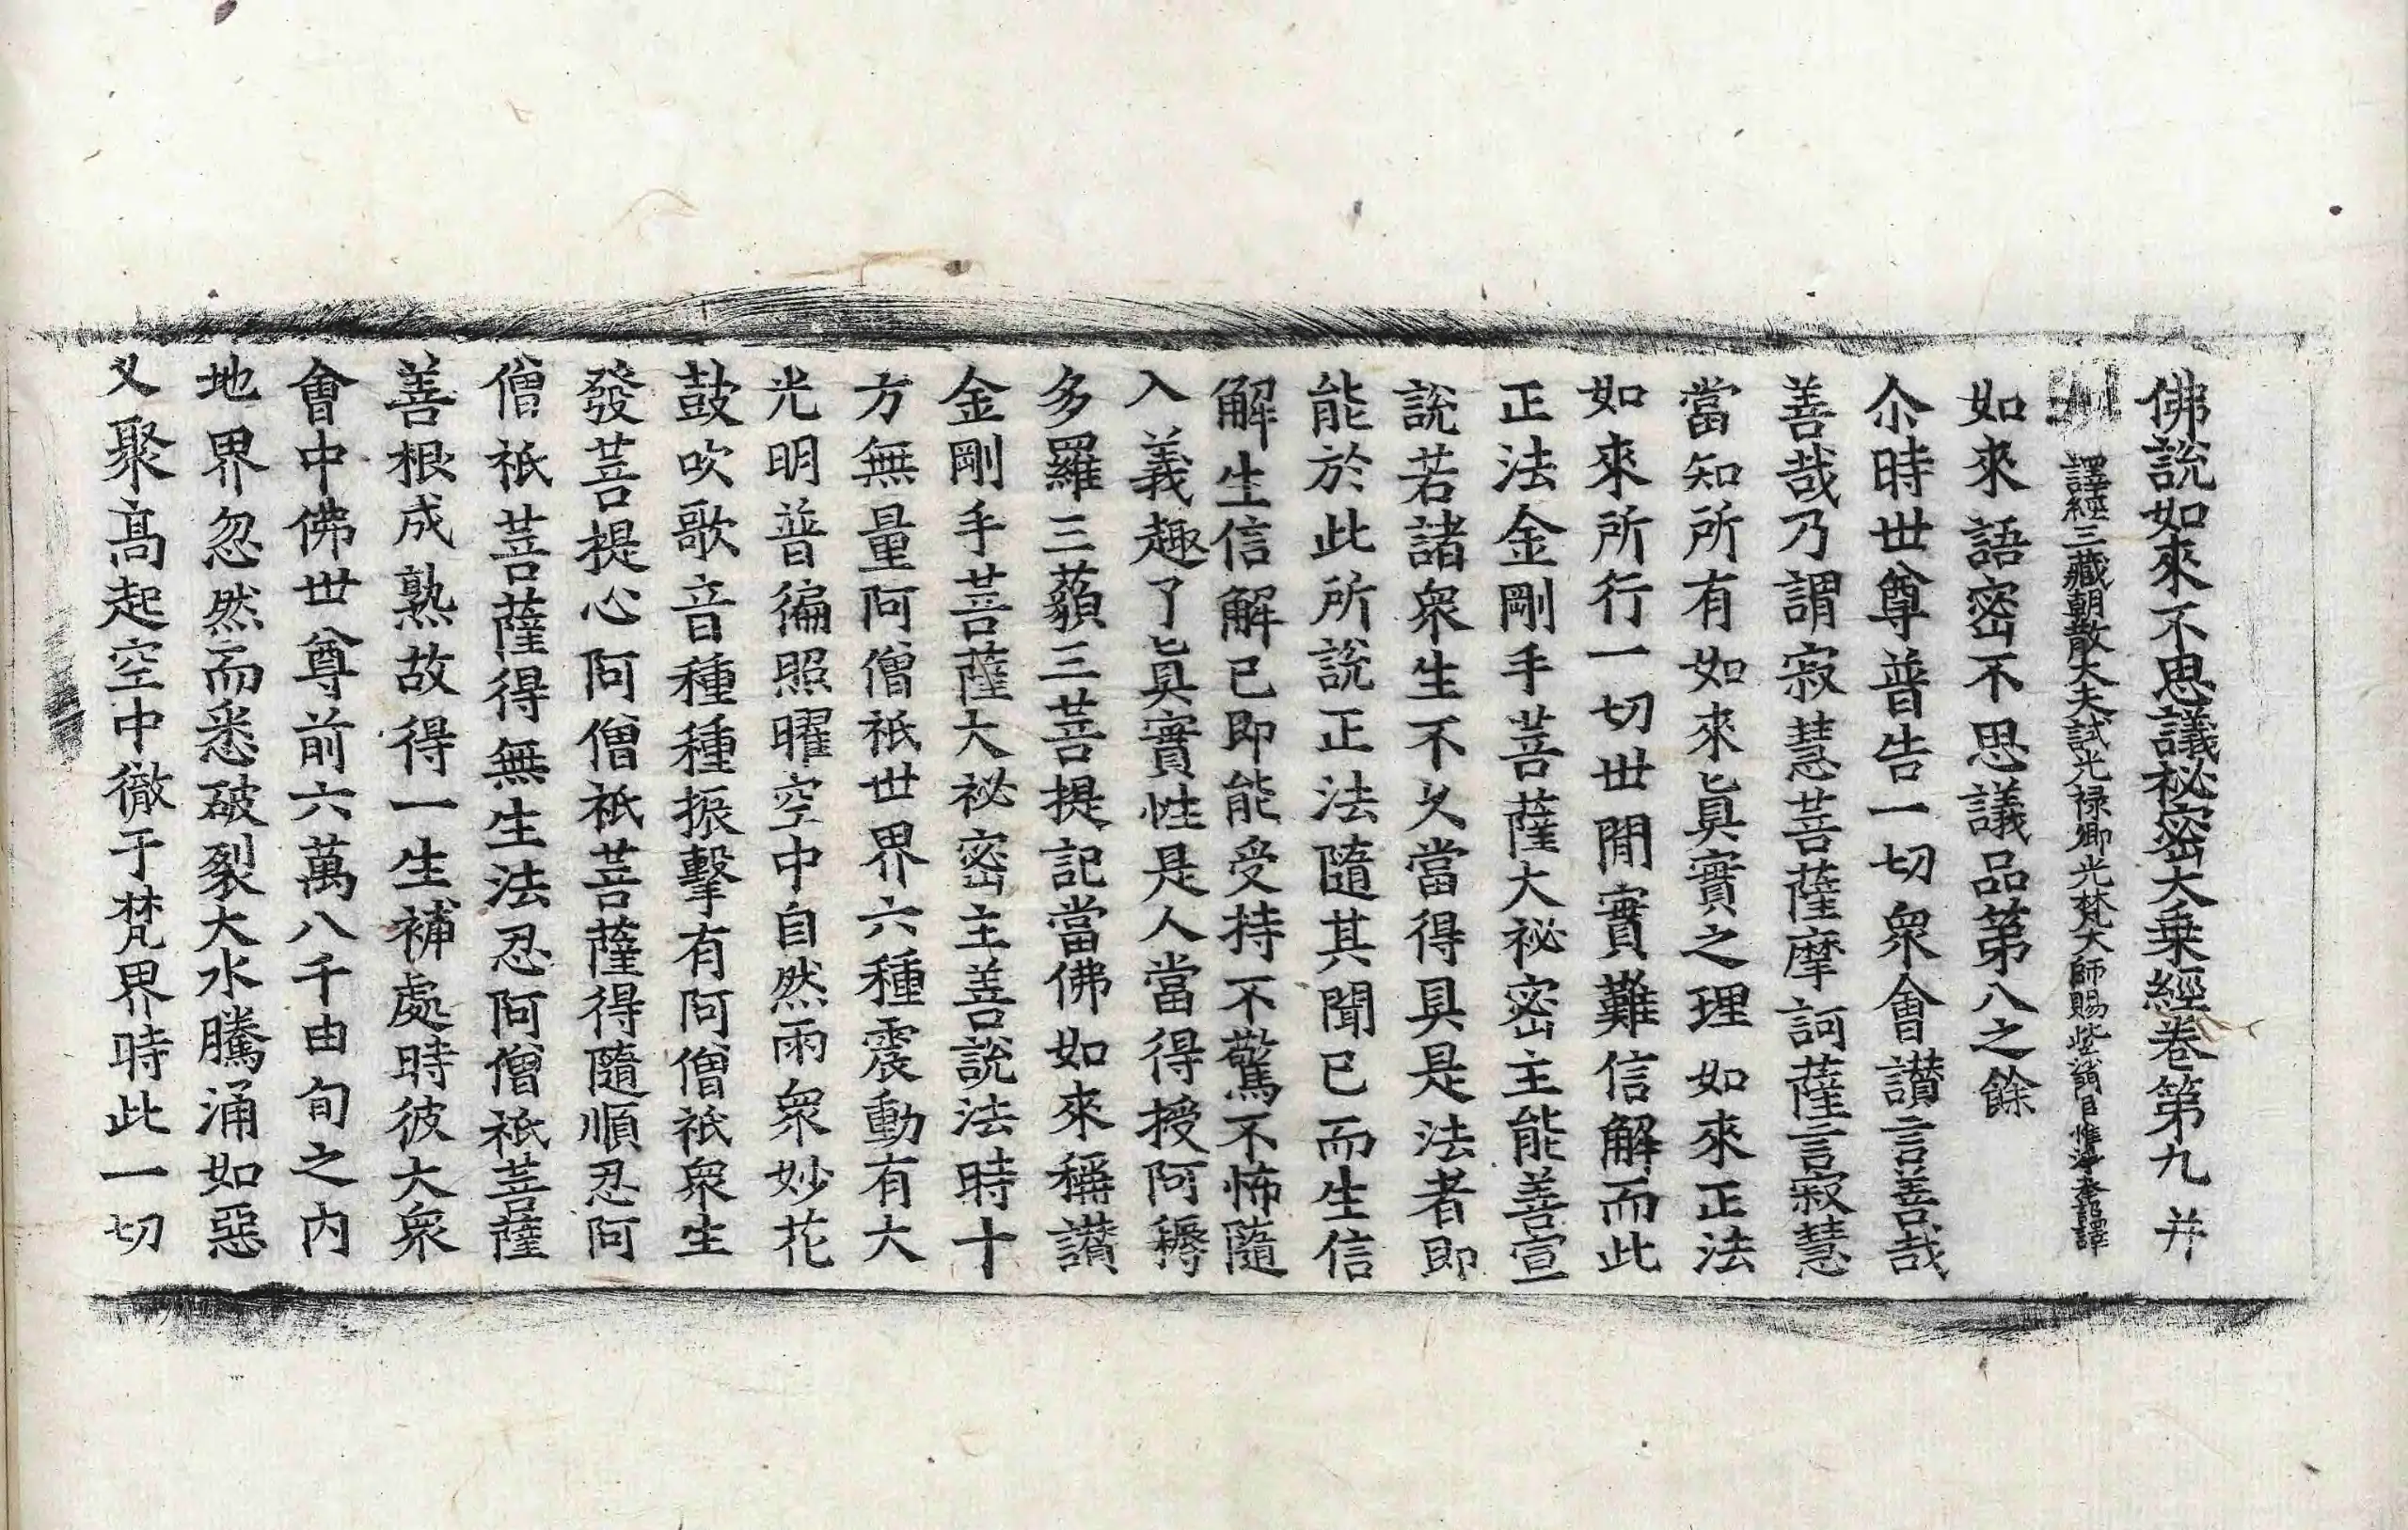 佛說如來不思議祕密大乗經卷第九 并
譯經三藏朝散大夫試光禄卿光梵大師賜紫沙門臣惟淨奉詔譯
如來語密不思議品第八之餘
尒時世尊普告一切衆會讃言善哉
善哉乃謂寂慧菩薩摩訶薩言寂慧
當知所有如來眞實之理如來正法
如來所行一切世閒實難信解而此
正法金剛手菩薩大祕密主能善宣
說若諸衆生不久當得具是法者即
能於此所說正法隨其聞已而生信
解生信解已即能受持不驚不怖隨
入義趣了眞實性是人當得授阿耨
多羅三藐三菩提記當佛如來稱讃
金剛手菩薩大祕密主善說法時十
方無量阿僧祇世界六種震動有大
光明普徧照曜空中自然雨衆妙花
鼓吹歌音種種振擊有阿僧祇衆生
發菩提心阿僧祇菩薩得隨順忍阿
僧祇菩薩得無生法忍阿僧祇菩薩
善根成熟故得一生補處時彼大衆
會中佛世尊前六萬八千由旬之内
地界忽然而悉破裂大水騰涌如惡
叉聚高起空中徹于梵界時此一切